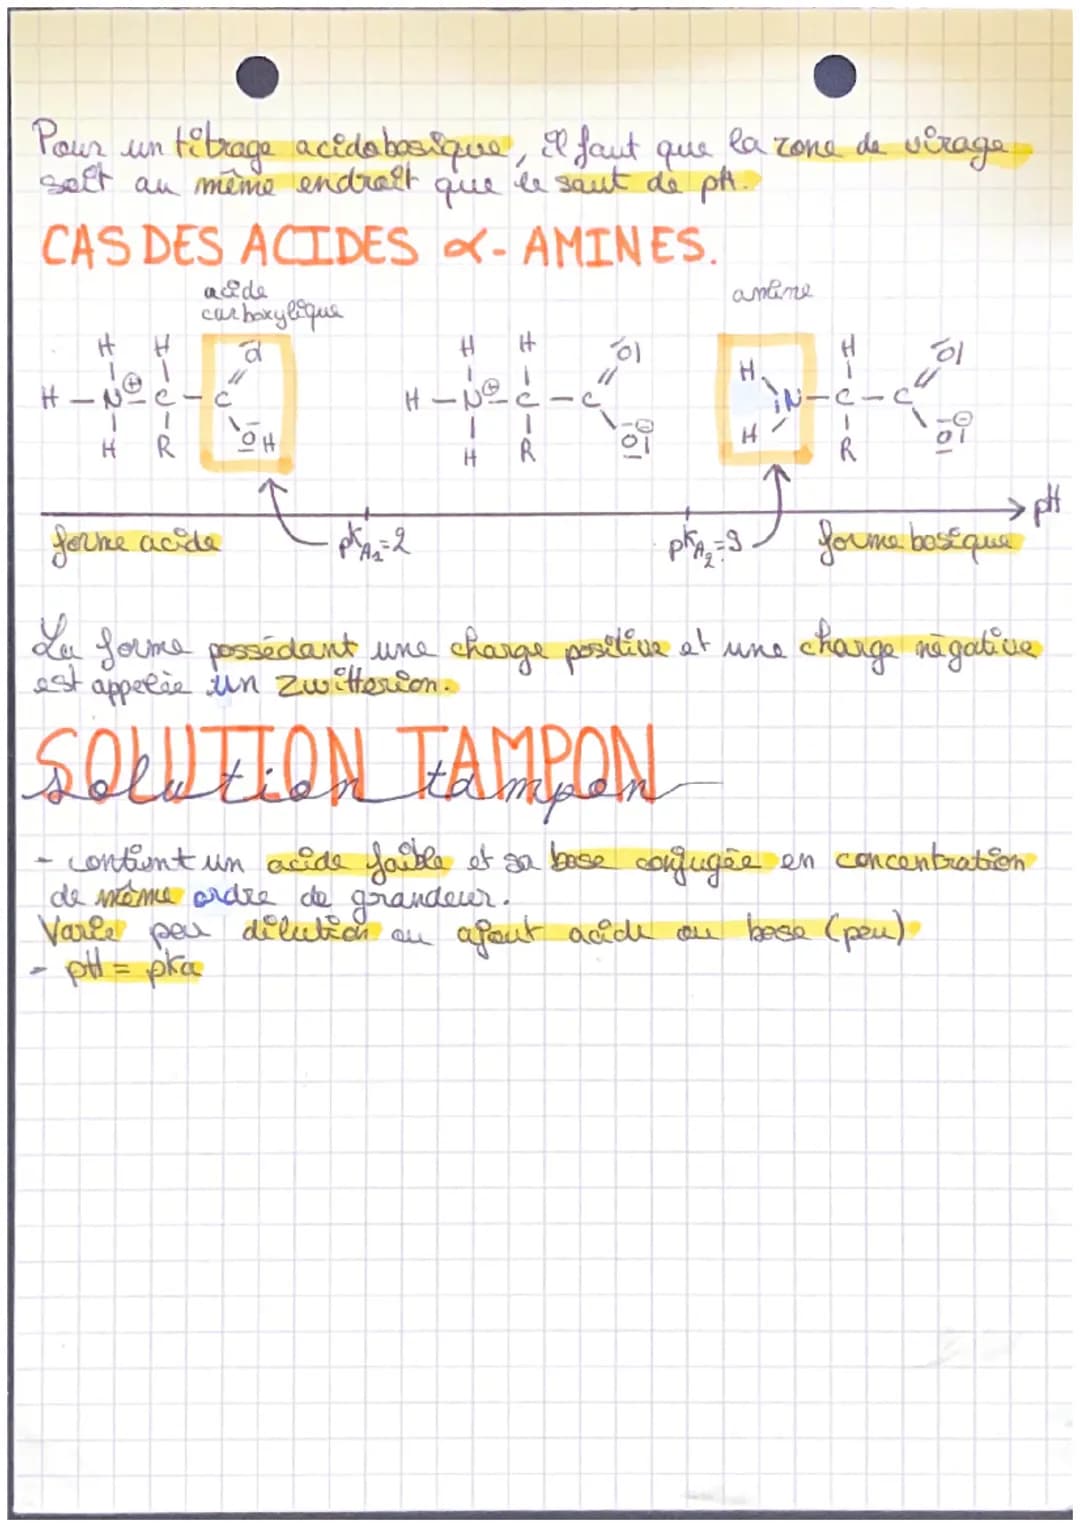 Pour un titrage acidobasique, il faut que la zone de virage
soit au même endroit que le saut de pH.
CAS DES ACIDES α-AMINES.
acide
carboxylique
amine
H H O H H O H H O
H — N⊕ — C — C H — N⊕ — C — C N — C — C
H R O H H R O⊖ H R O⊖
pH
forme acide pKA1=2 pKA2=9 forme basique
La forme possédant une charge positive et une charge négative
est appelée un zwitterion.
SOLUTION TAMPON
solution tampon
- contient un acide faible et sa base conjugée en concentration
de même ordre de grandeur.
Varie peu dilution ou ajout acide ou base (peu)
- pH = pka